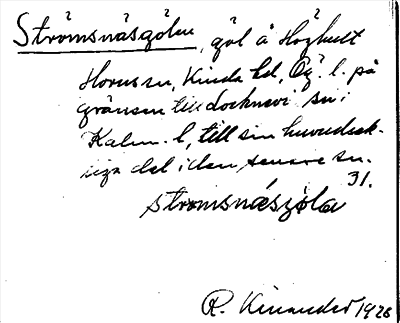 Strömsnäsgölen, göl å Höghult
Horns sn, Kinda hd, Ög. l. på
gränsen till Locknevi sn i
Kalm. l, till sin huvudsak-
liga del i den senare sn.
31.
Strömsnäsgöla
R. Kinander 1926